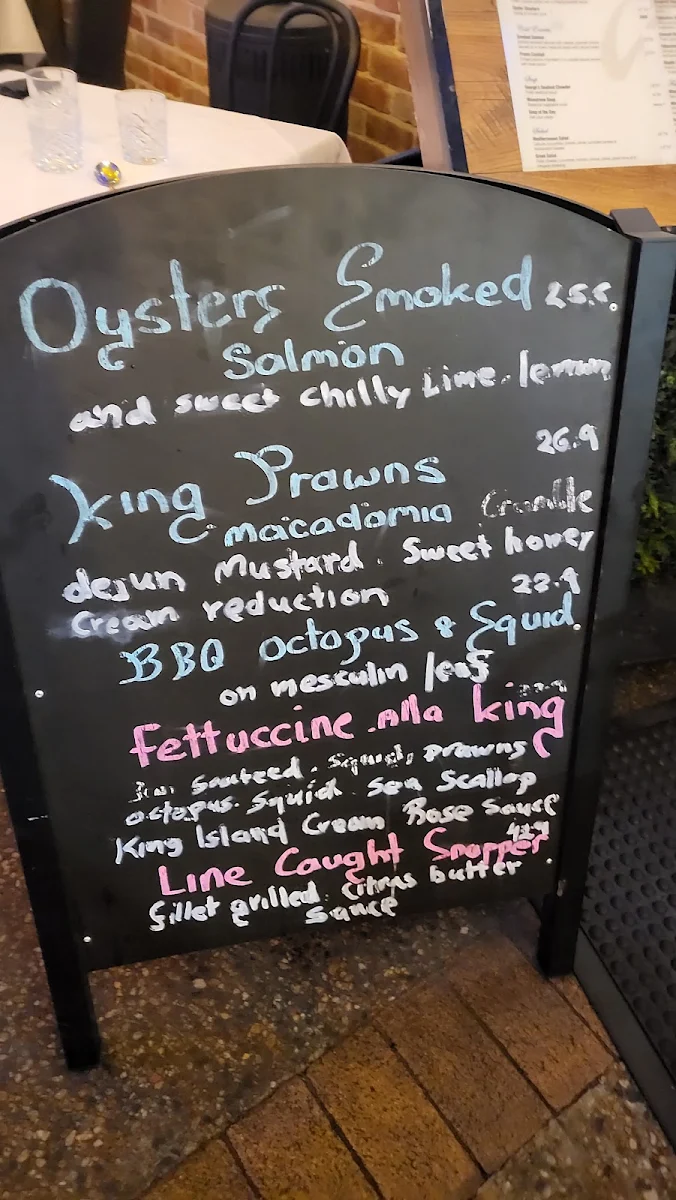 Oysters Smoked
Salmon
and sweet chilly Lime. lemon
26.9
King Prawns
macadamia Crumble
dejun Mustard. Sweet honey
Cream reduction
BBQ octopus & Squid
on mesculin leaf
fettuccine .Alla king
Sauteed. Squid, prawns
octopus. Squid. Sea Scallop
King Island Cream Rose Sauce
Line Caught Snapper
fillet grilled. Citrus butter
Sauce
Mediterranean Salad
Greek Salad